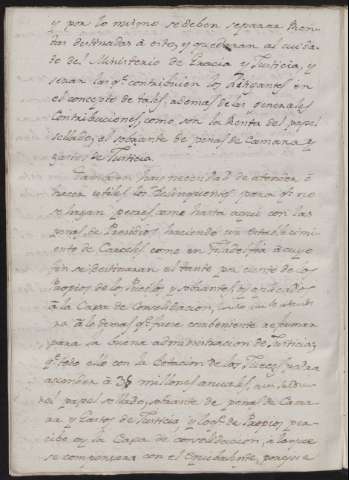 y por lo mismo se deben separar Rentas
destinadas à esto, y quedaran al cuidado
del Ministerio de Gracia y Justicia, y
seran las qe. contribuien los litigantes en
el concepto de tales, ademas de las generales
Contribuciones, como son la Renta del papel
sellado, el sobrante de penas de Camara y
gastos de Justicia.
Tambien hay necesidad de atender à
hacer utiles los delinquentes para qe. no
se hagan peores, como hasta aqui con las
penas de Presidio, haciendo un establecimiento
de Carceles como en Filadelfia a cuyo
fin se destinaran el tanto por ciento de los
Propios de los Pueblos y sobrantes qe.
à la Caxa de Consolidacion,
à lo demas qe. fuere conducente
para la buena administracion de Justicia;
qe. todo ello con la dotacion de los Jueces podra
ascender à 35 millones anuales,
del papel sellado, sobrante de penas de Camara
y Gastos de Justicia y los de Propios, percibe
oy la Caxa de consolidacion, à la que
se compensara con el equivalente, porque